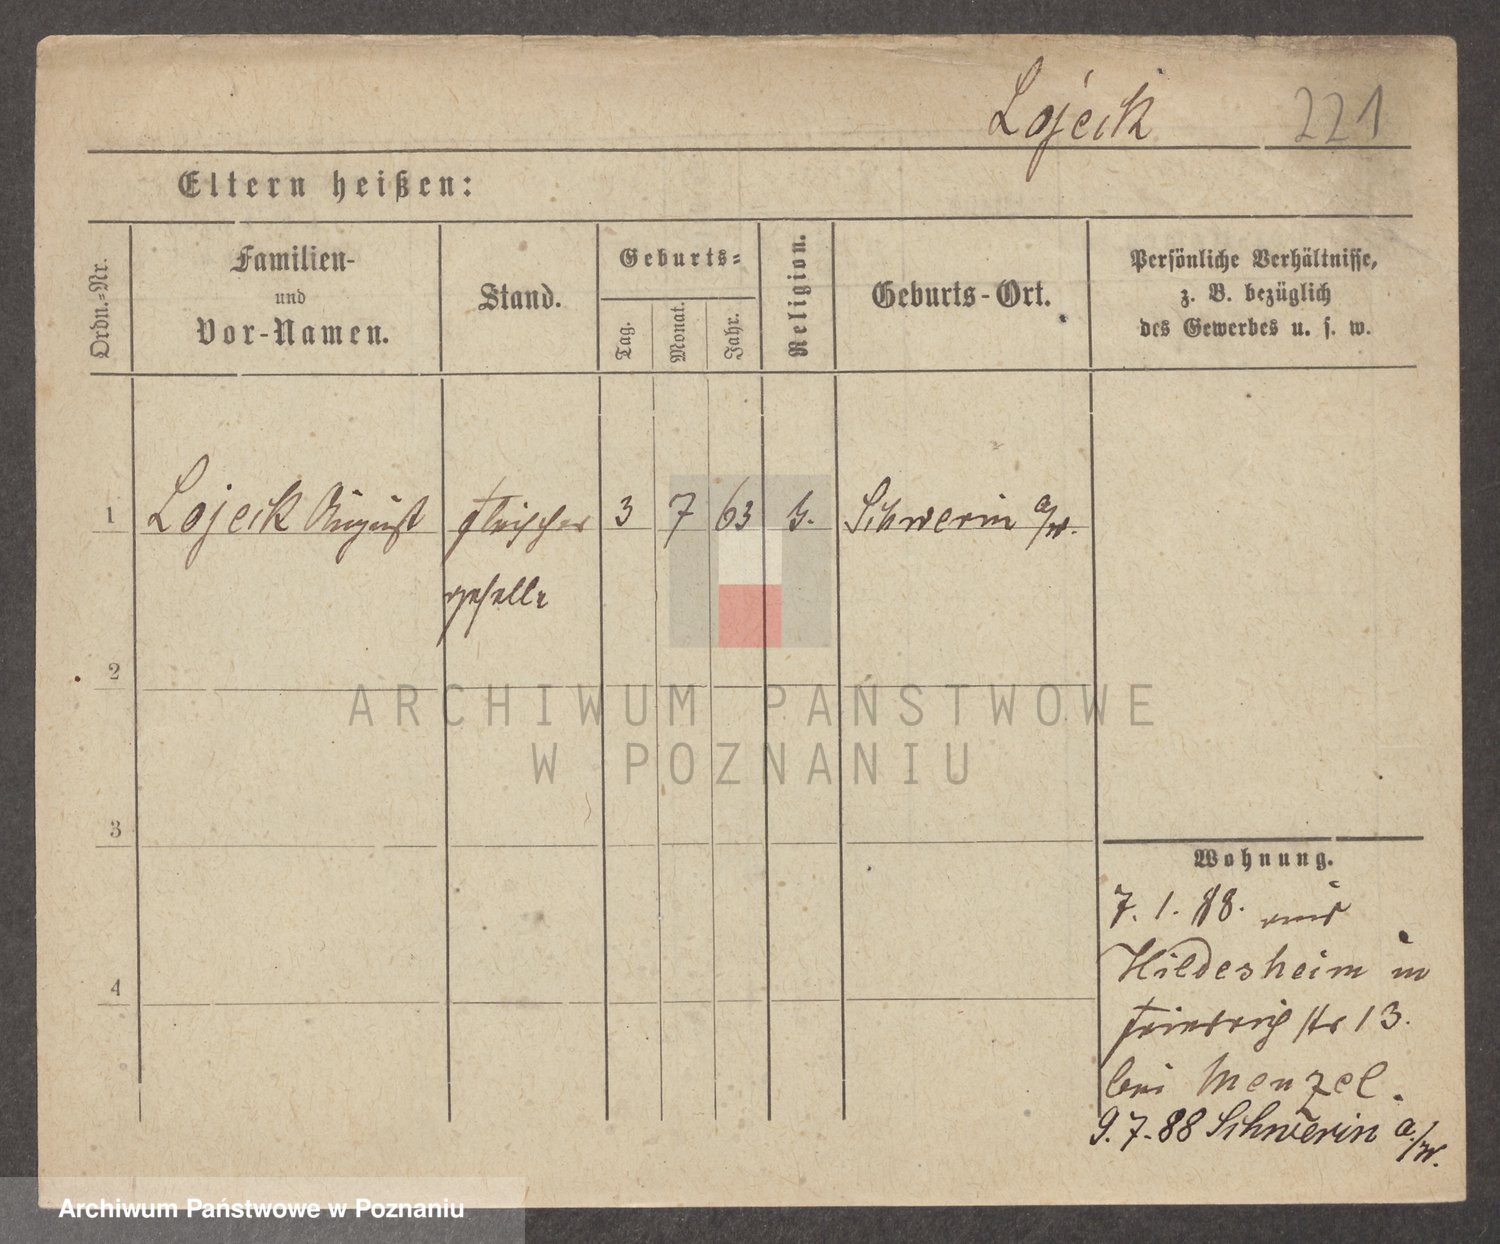 Lojeik 221
Eltern heißen:
Ordn.-Nr.
Familien-
und
Vor-Namen.
Stand.
Geburts-
Tag.
Monat.
Jahr.
Religion.
Geburts-Ort.
Persönliche Verhältnisse,
z. B. bezüglich
des Gewerbes u. s. w.
1 Lojeik August Fleischer 3 7 63 Schwerin a/W.
geselle
2
ARCHIWUM PAŃSTWOWE
W POZNANIU
3
4
Wohnung.
7. 1. 88. aus
Hildesheim in
Friedrich str 13.
bei Menzel.
9. 7. 88 Schwerin a/W.
Archiwum Państwowe w Poznaniu